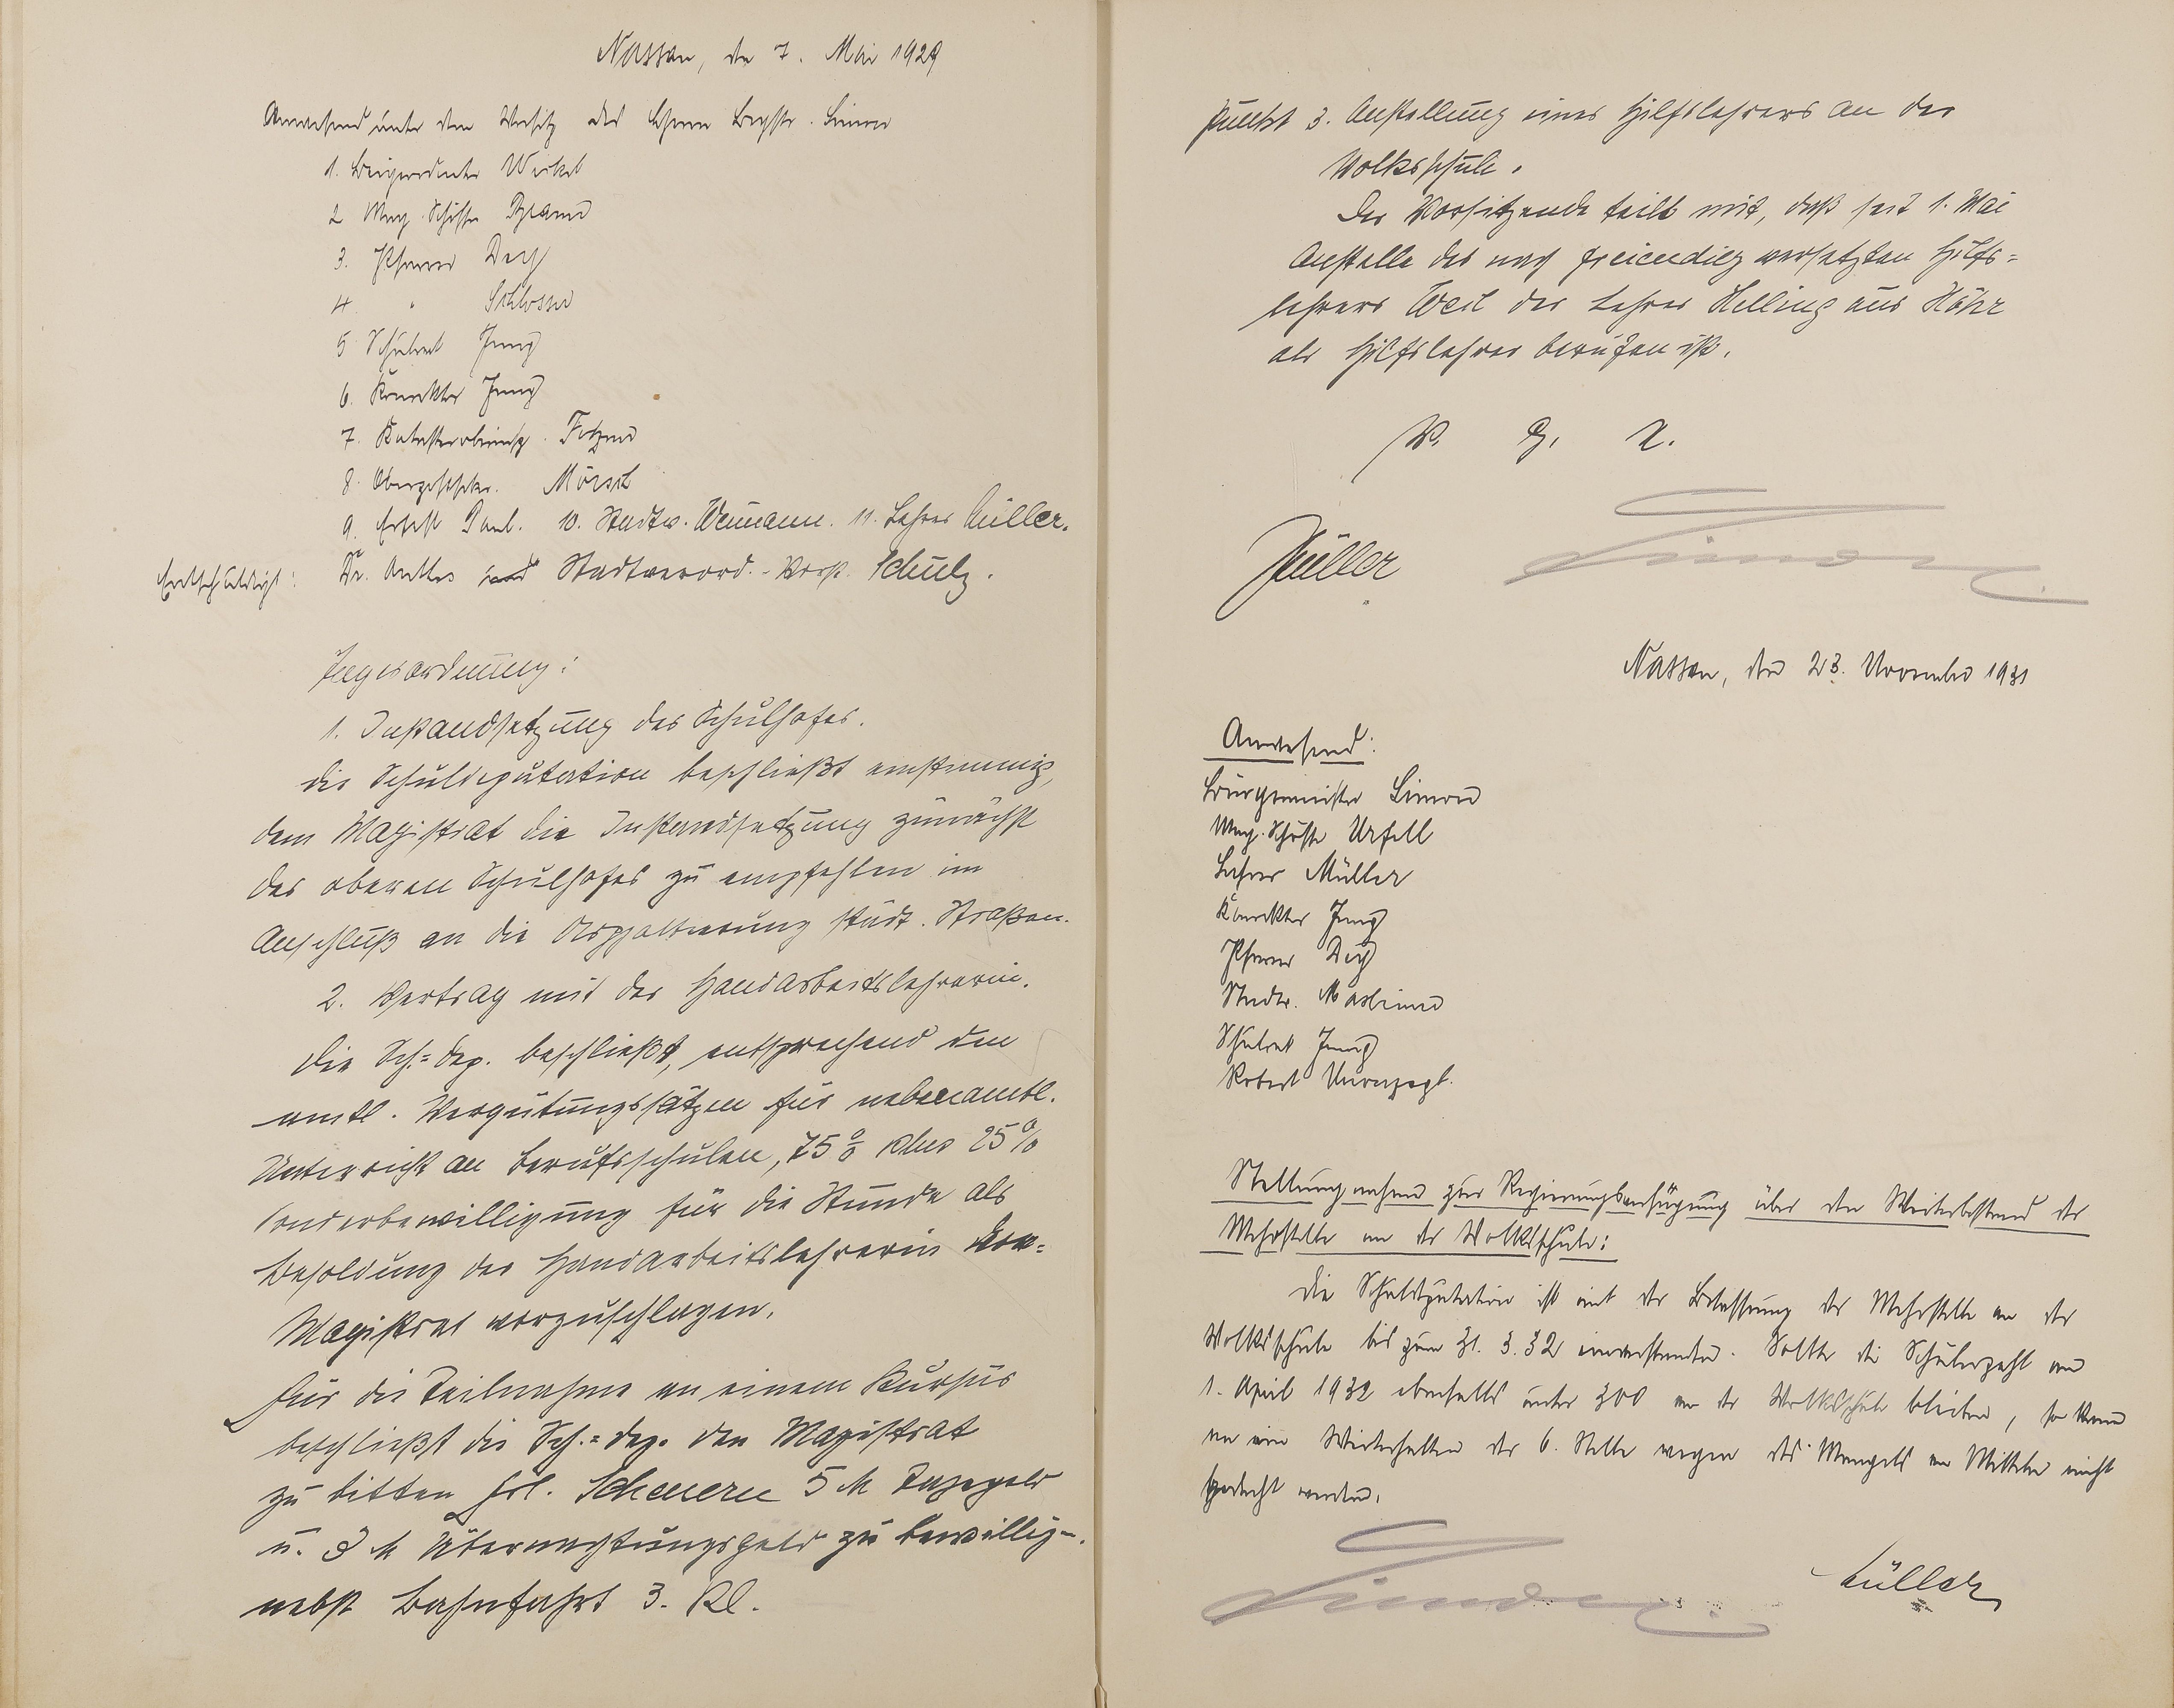 Nassau, den 7. Mai 1929
Anwesend unter dem Vorsitz des Herrn Bürgstr. Simon
1. Beigeordneter Werkel
2 Mag. Schöffe
3. Pfarrer Dey
4. " Schlosser
5 Schulrat Jung
6. Konrektor Jung
7. Katasterobinsp.
8. Obergstsekr. Mörsch
9. Ernst Paul. 10. Stadtv. 11. Lehrer Müller.
Entschuldigt: Dr. Anthes und Stadtverord.-Vorst. Schulz.
Tagesordnung:
1. Instandsetzung des Schulhofes.
Die Schuldeputation beschließt einstimmig,
dem Magistrat die Instandsetzung zunächst
des oberen Schulhofes zu empfehlen im
Anschluß an die Asphaltierung städt. Straßen.
2. Vertrag mit der Handarbeitslehrerin.
Die Sch.=dep. beschließt, entsprechend den
amtl. Vergütungssätzen für nebenamtl.
Unterricht an Berufsschulen, 75 % plus 25 %
Sonderbewilligung für die Stunde als
Besoldung der Handarbeitslehrerin dem
Magistrat vorzuschlagen.
Für die Teilnahme an einem Kursus
beschließt die Sch.=dep. den Magistrat
zu bitten Frl. Scheuern 5 M Tagegeld
u. 3 M Übernachtungsgeld zu bewillig.
nebst Bahnfahrt 3. Kl.
Punkt 3. Anstellung eines Hilfslehrers an der
Volksschule.
Der Vorsitzende teilt mit, daß seit 1. Mai
Anstelle des nach Freiendiez versetzten Hilfs=
lehrers Weil der Lehrer Helling aus Höhr
als Hilfslehrer berufen ist.
V. g. u.
Müller Simon
Nassau, den 23. November 1931
Anwesend:
Bürgermeister Simon
Mag. Schöffe Urfell
Lehrer Müller
Konrektor Jung
Pfarrer Dey
Stadtv.
Schulrat Jung
Robert
Stellungnahme zur Regierungsverfügung über den Weiterbestand der
Mehrstelle an der Volksschule:
Die Schuldeputation ist mit der Belassung der Mehrstelle an der
Volksschule bis zum 31. 3. 32 einverstanden. Sollte die Schülerzahl am
1. April 1932 ebenfalls unter 300 an der Volksschule bleiben, so kann
an ein Weiterhalten der 6. Stelle wegen des Mangels an Mitteln nicht
gedacht werden.
Simon Müller